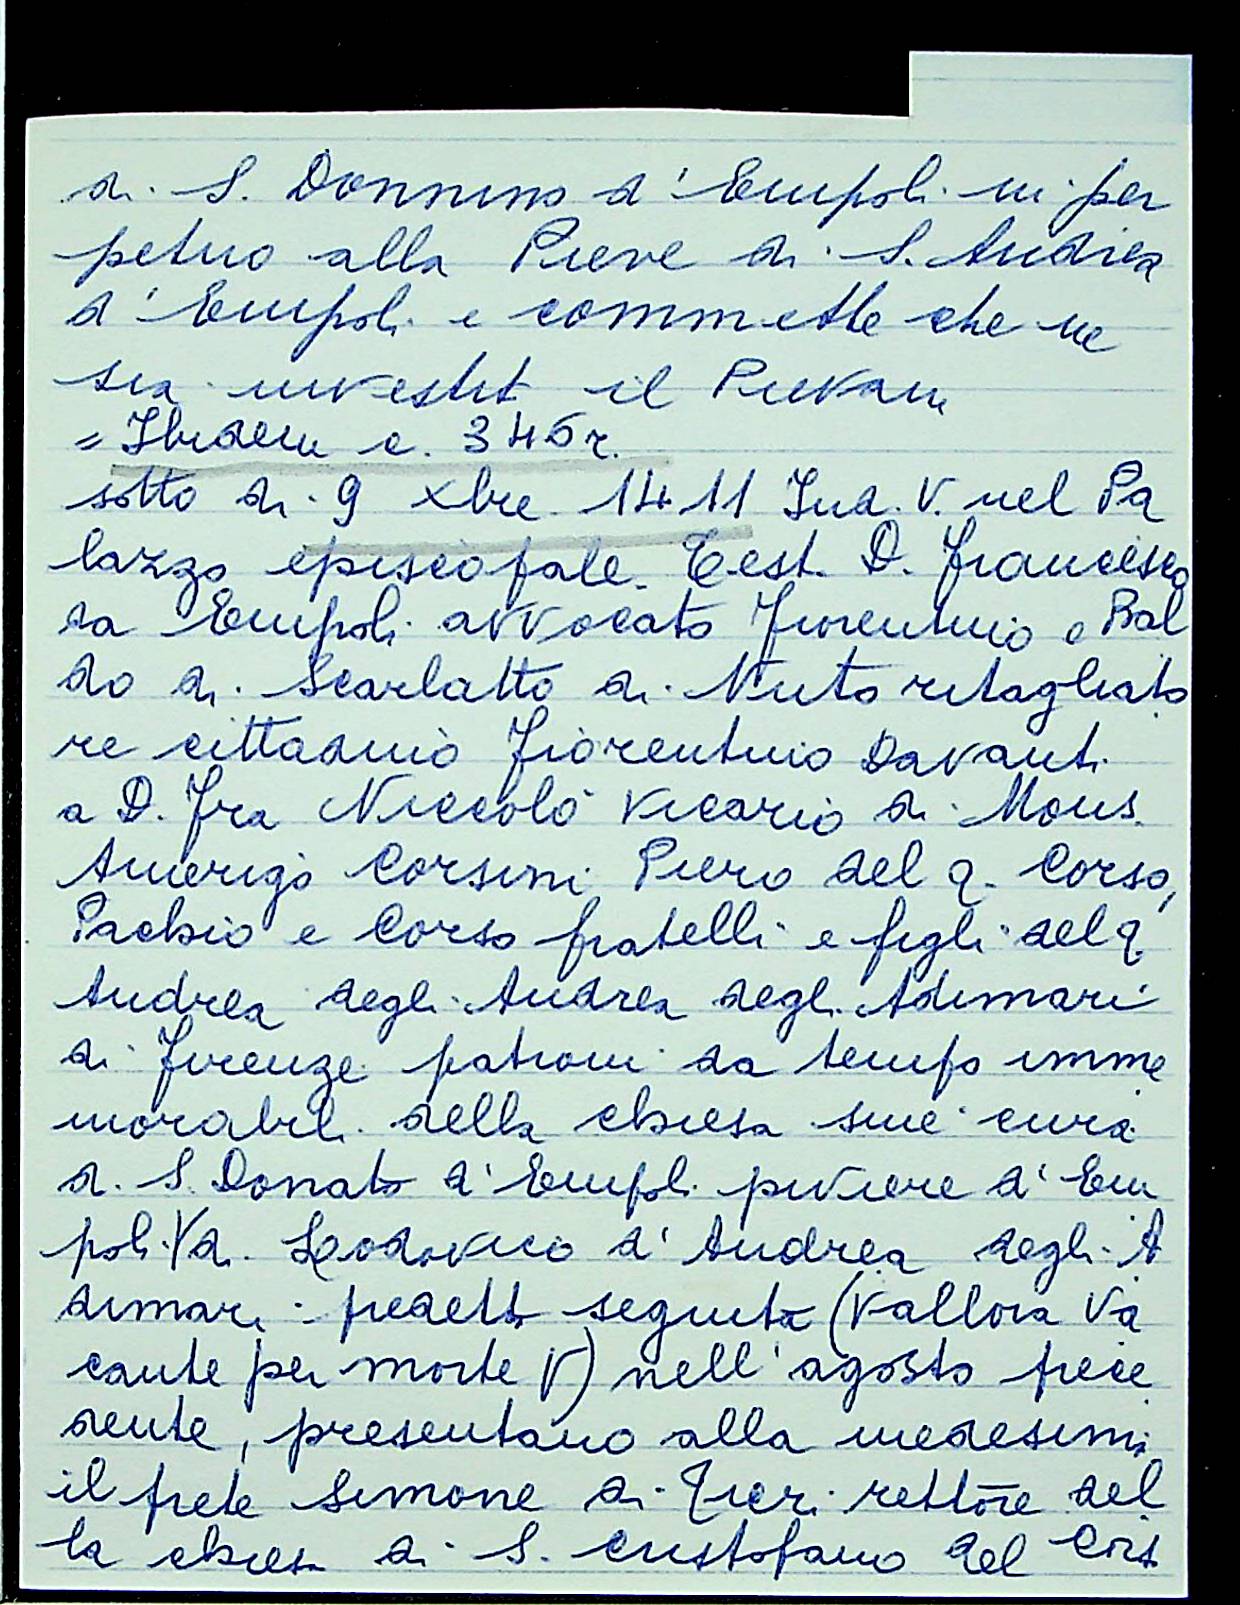 di S. Donnino d'Empoli in per
petuo alla Pieve di S. Andrea
d'Empoli e commette che ne
sia investit il Pievan
= Ibidem c. 345r.
sotto di 9 xbre 1411 Ind. V. nel Pa
lazzo episcopale. Test. D. Francesco
da Empoli avvocato Fiorentino e Bal
do di Scarlatto di Nuto ritagliato
re cittadino fiorentino Davanti
a D. Fra Niccolò Vicario di Mons.
Amerigo Corsini Piero del q. Corso,
Pachio e Corso fratelli e figli del q.
Andrea degli Andrea degli Adimari
di Firenze patroni da tempo imme
morabil. della chiesa sine cura
di S. Donato d'Empoli piviere d'Em
poli V di Lodovico d'Andrea degli A
dimari predett seguita (Vallora Va
cante per morte V) nell'agosto prece
dente, presentano alla medesimi
il prete Simone di Pieri rettore del
la chiesa di S. Cristofano del Cors